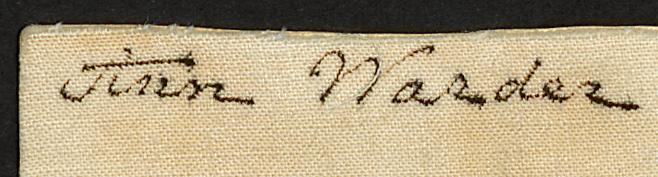 Ann Warder